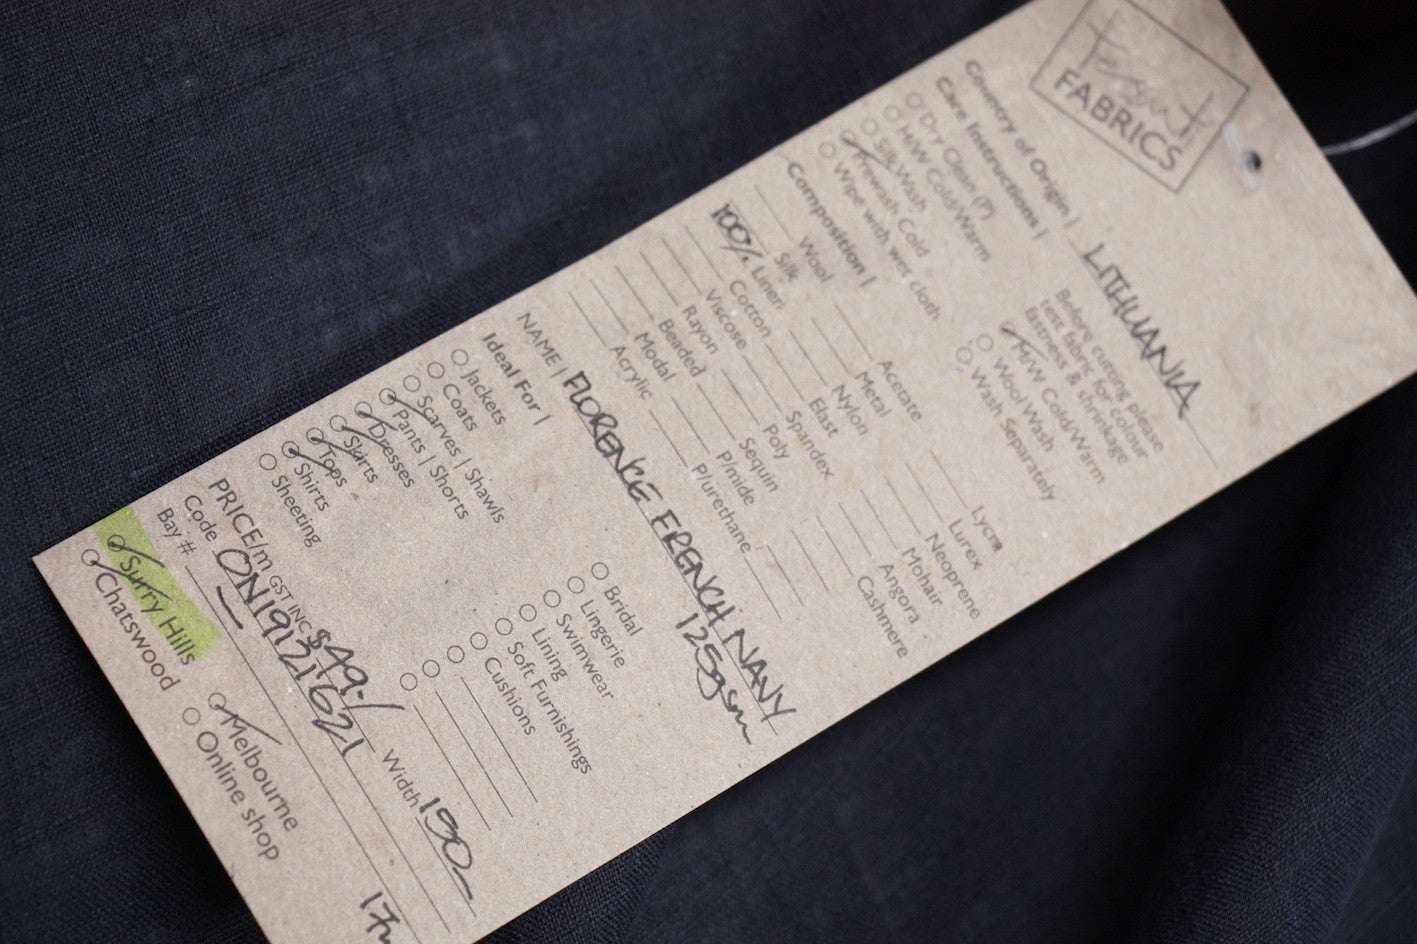 Tessuti
FABRICS
Country of Origin | LITHUANIA
Care Instructions |
Before cutting please
test fabric for colour
fastness & shrinkage
Dry Clean (P)
H/W Cold/Warm
Silk Wash
Prewash Cold
Wipe with wet cloth
M/W Cold/Warm
Wool Wash
Wash Separately
Composition |
Wool
Silk
100% Linen
Cotton
Viscose
Rayon
Beaded
Modal
Acrylic
Acetate
Metal
Nylon
Elast
Spandex
Poly
Sequin
P/mide
P/urethane
Lycra
Lurex
Neoprene
Mohair
Angora
Cashmere
NAME | FLORENCE FRENCH NAVY
125gsm
Ideal For |
Jackets
Coats
Scarves | Shawls
Pants | Shorts
Dresses
Skirts
Tops
Shirts
Sheeting
Bridal
Lingerie
Swimwear
Lining
Soft Furnishings
Cushions
PRICE/m GST INC $49./ Width 190
Code ON19121621
Bay #
Surry Hills
Chatswood
Melbourne
Online shop